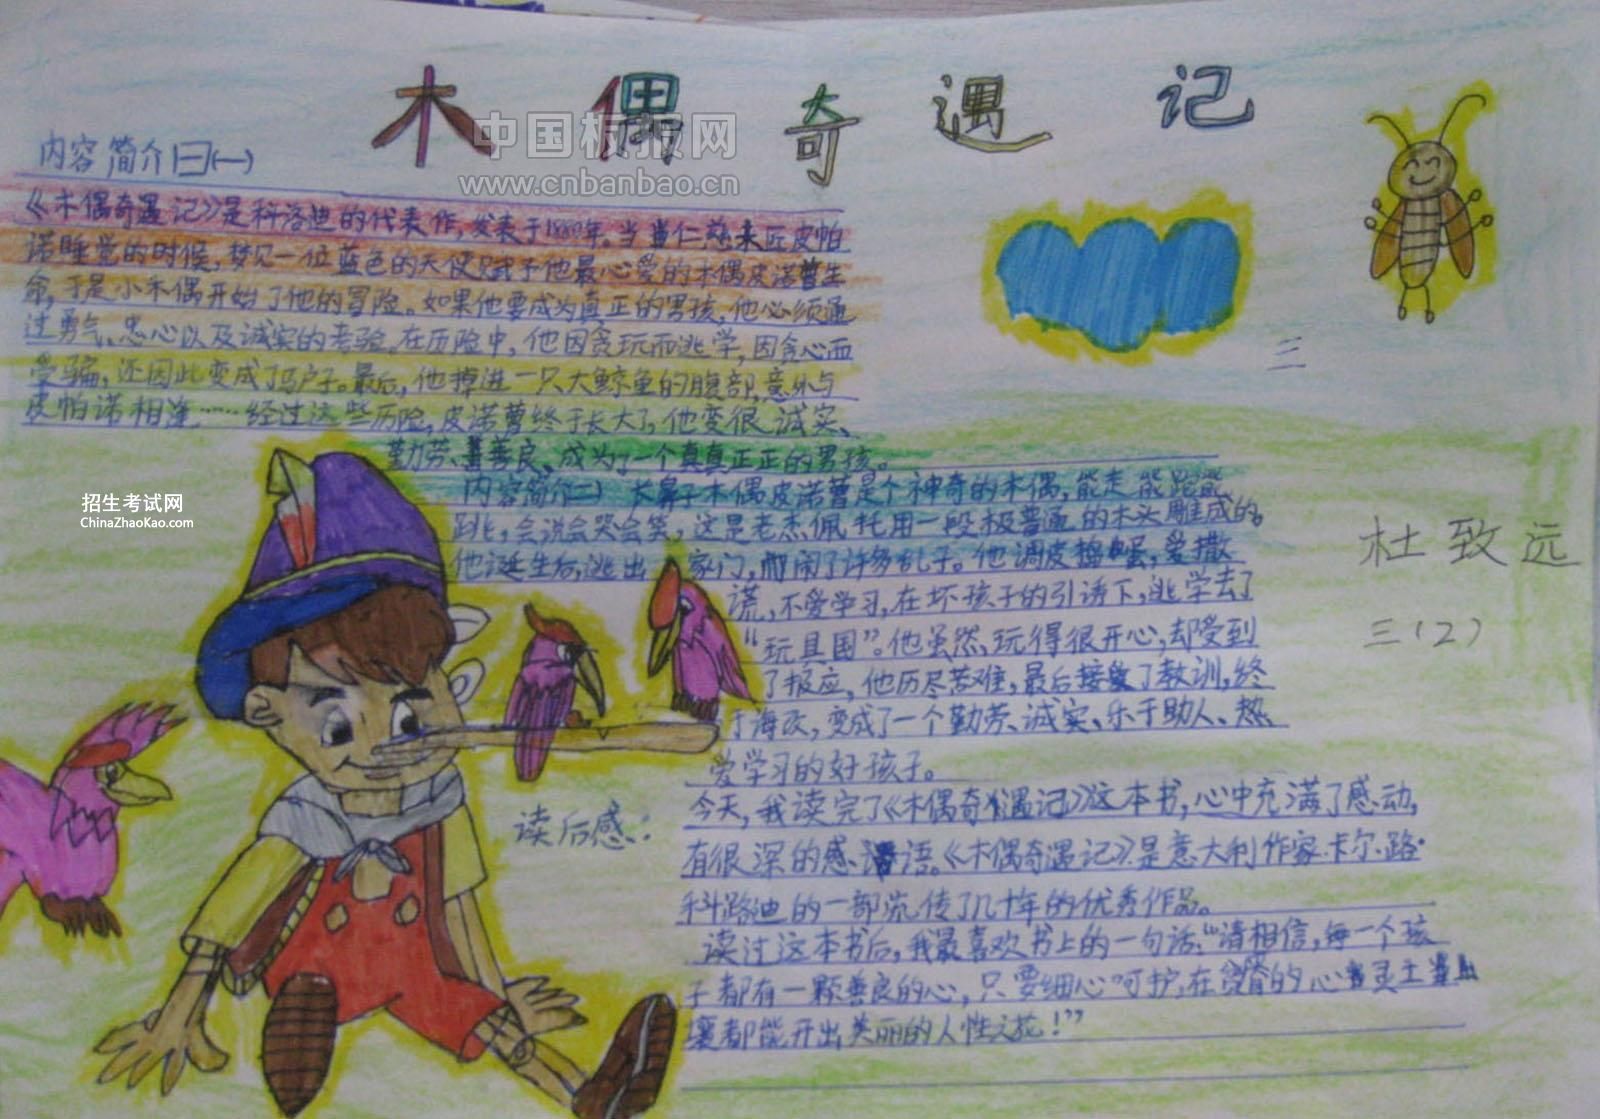 木偶奇遇记
中国板报网
www.cnbanbao.cn
内容简介(一)
《木偶奇遇记》是科洛迪的代表作,发表于1880年。当仁慈木匠皮帕
诺睡觉的时候,梦见一位蓝色的天使赋予他最心爱的木偶皮诺曹生
命,于是小木偶开始了他的冒险。如果他要成为真正的男孩,他必须通
过勇气、忠心以及诚实的考验。在历险中,他因贪玩而逃学,因贪心而
受骗,还因此变成了驴子。最后,他掉进一只大鲸鱼的腹部,意外与
皮帕诺相逢……经过这些历险,皮诺曹终于长大了,他变很诚实、
勤劳、善良,成为了一个真真正正的男孩。
内容简介(二) 长鼻子木偶皮诺曹是个神奇的木偶,能走能跑能
跳,会说会哭会笑,这是老杰佩托用一段极普通的木头雕成的。
他诞生后,逃出家门,闹了许多乱子。他调皮捣蛋,爱撒
谎,不爱学习,在坏孩子的引诱下,逃学去了
“玩具国”。他虽然玩得很开心,却受到
了报应,他历尽苦难,最后接受了教训,终
于海改,变成了一个勤劳、诚实、乐于助人、热
爱学习的好孩子。
读后感:
今天,我读完了《木偶奇遇记》这本书,心中充满了感动,
有很深的感语。《木偶奇遇记》是意大利作家卡尔·路·
科路迪的一部流传了几十年的优秀作品。
读过这本书后,我最喜欢书上的一句话:“请相信,每一个孩
子都有一颗善良的心,只要细心呵护,在的心灵土
壤都能开出美丽的人性之花!”
三
杜致远
三(2)
招生考试网
ChinaZhaoKao.com